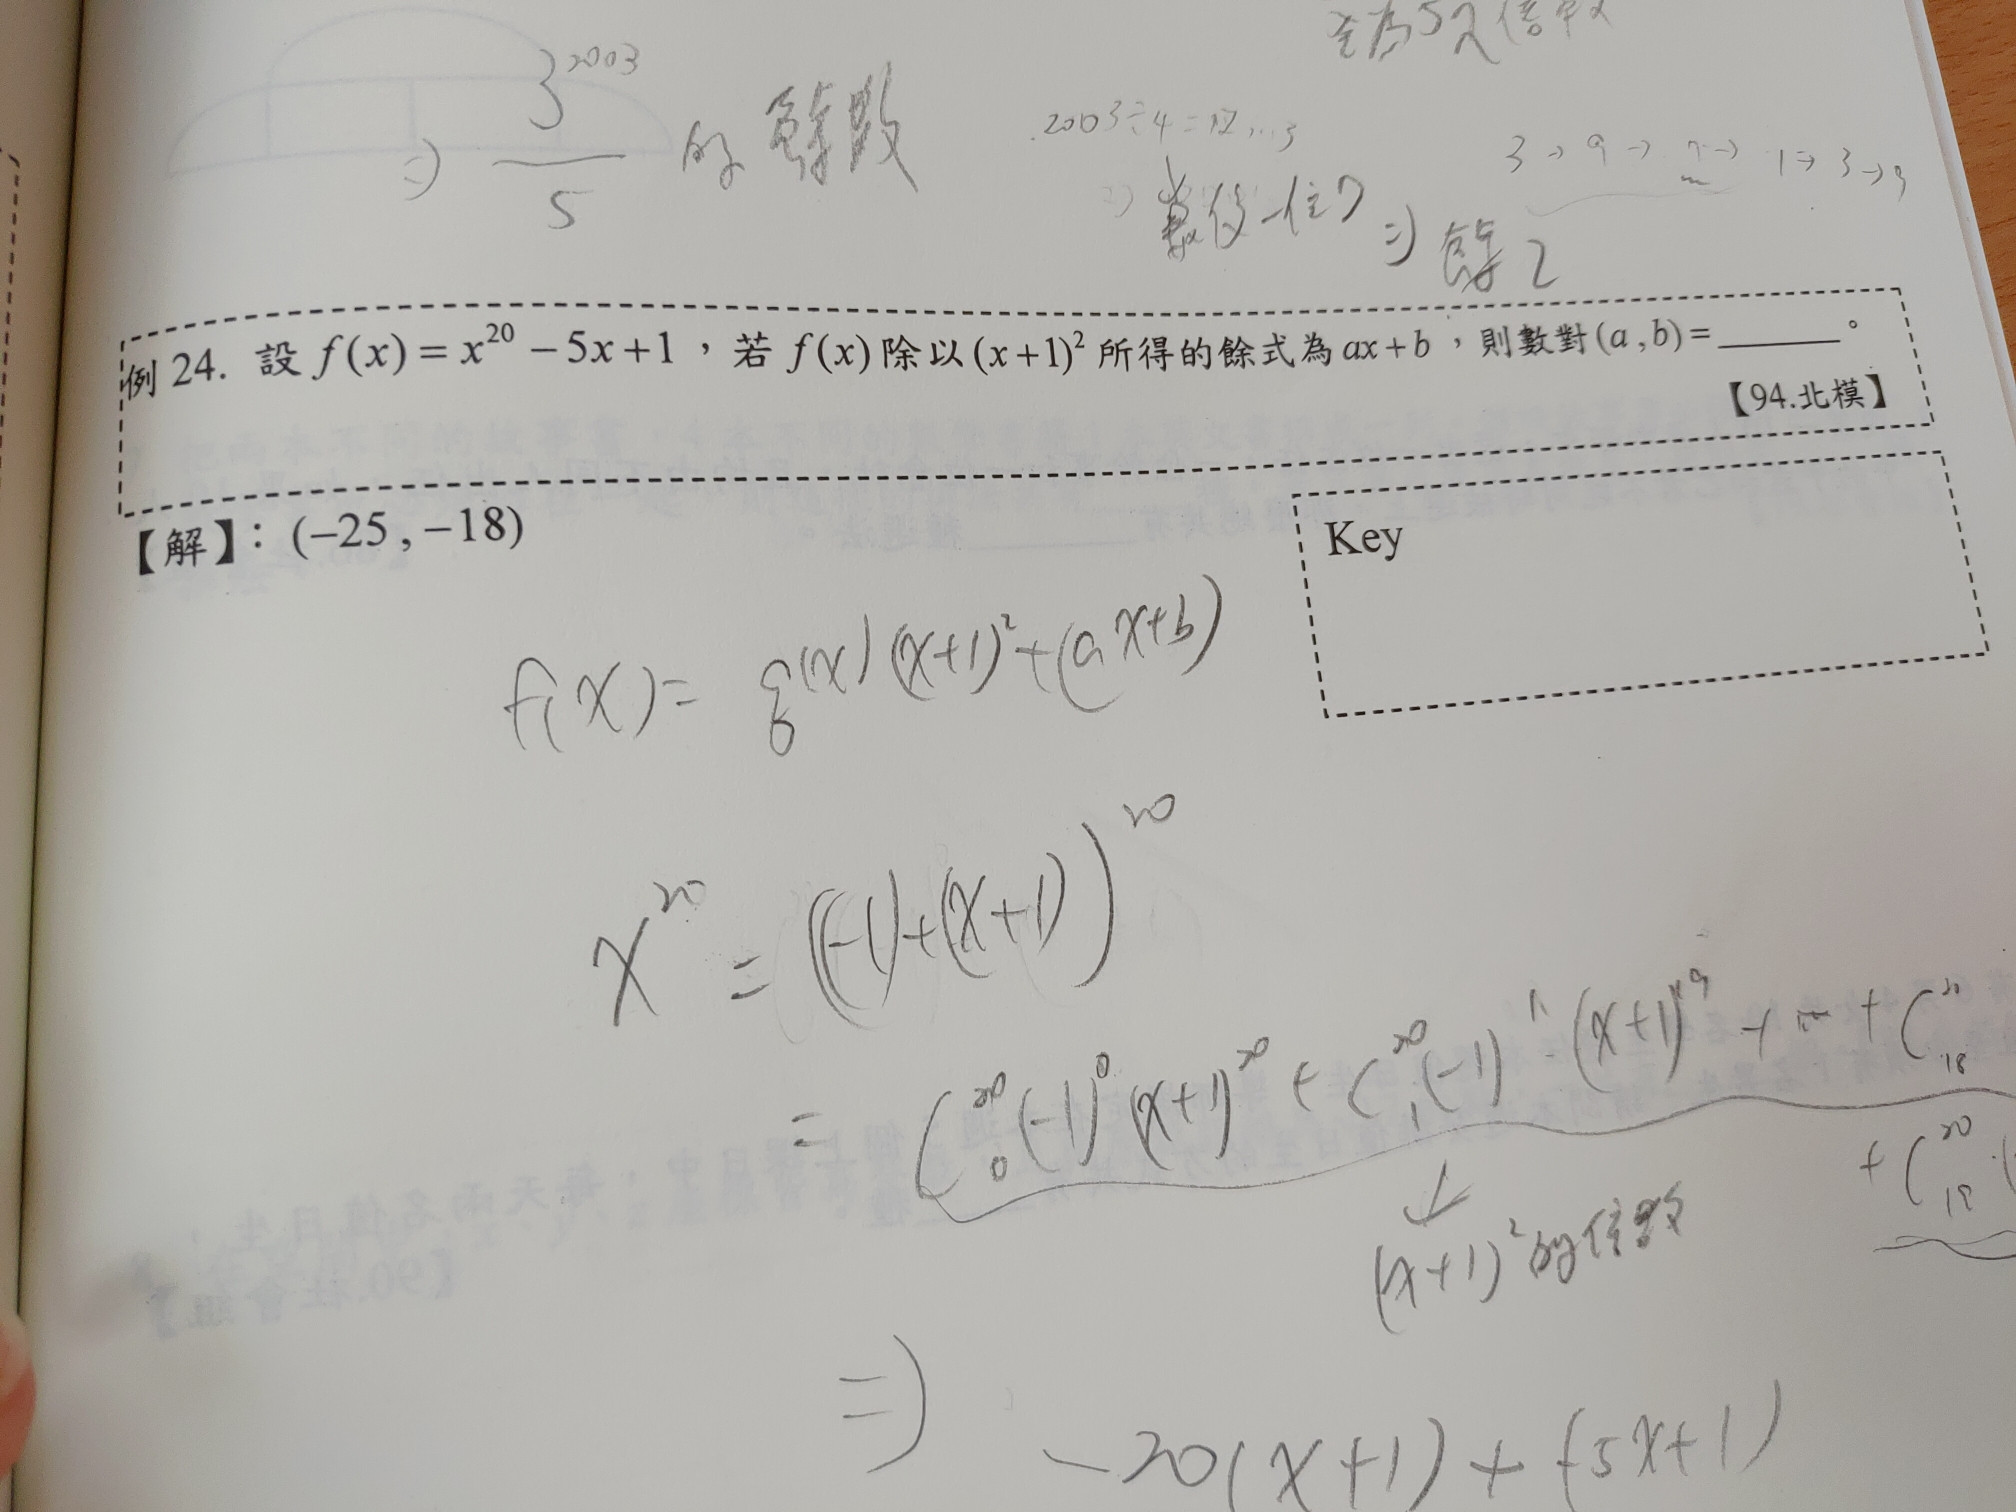 全為5之倍數
3^2003
⇒ ─── 的餘數
5
2003÷4=…3
3→9→7→1→3→9
數值個位7 ⇒ 餘2
例 24. 設 f(x)=x^20−5x+1,若 f(x) 除以 (x+1)^2 所得的餘式為 ax+b,則數對(a,b)=______。
【94.北模】
【解】:(−25,−18)
Key
f(x)= q(x)(x+1)^2+(ax+b)
x^20 = ((-1)+(x+1))^20
= C^20_0 (-1)^0 (x+1)^20 + C^20_1 (-1)^1·(x+1)^19 + … + C^20_18
+ C^20_19·(
↓
(x+1)^2的倍數
⇒ -20(x+1) + (-5x+1)